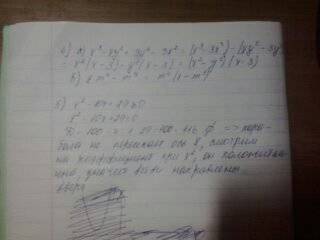 6) а) x³ - xy² + 3y² - 3x² = (x³ - 3x²) - (xy² - 3y²
= x²(x - 3) - y²(x - 3) = (x² - y²)(x - 3)
m² - m⁴ = m²(1 - m²)
x² - 10x + 29 > 0
x² - 10x + 29 = 0
D = 100 - 29 = 100 - 116 => пара-
бола не пересекает ось X, смотрим
на коэффициент при x², он положитель-
значит ветви направлены
вверх